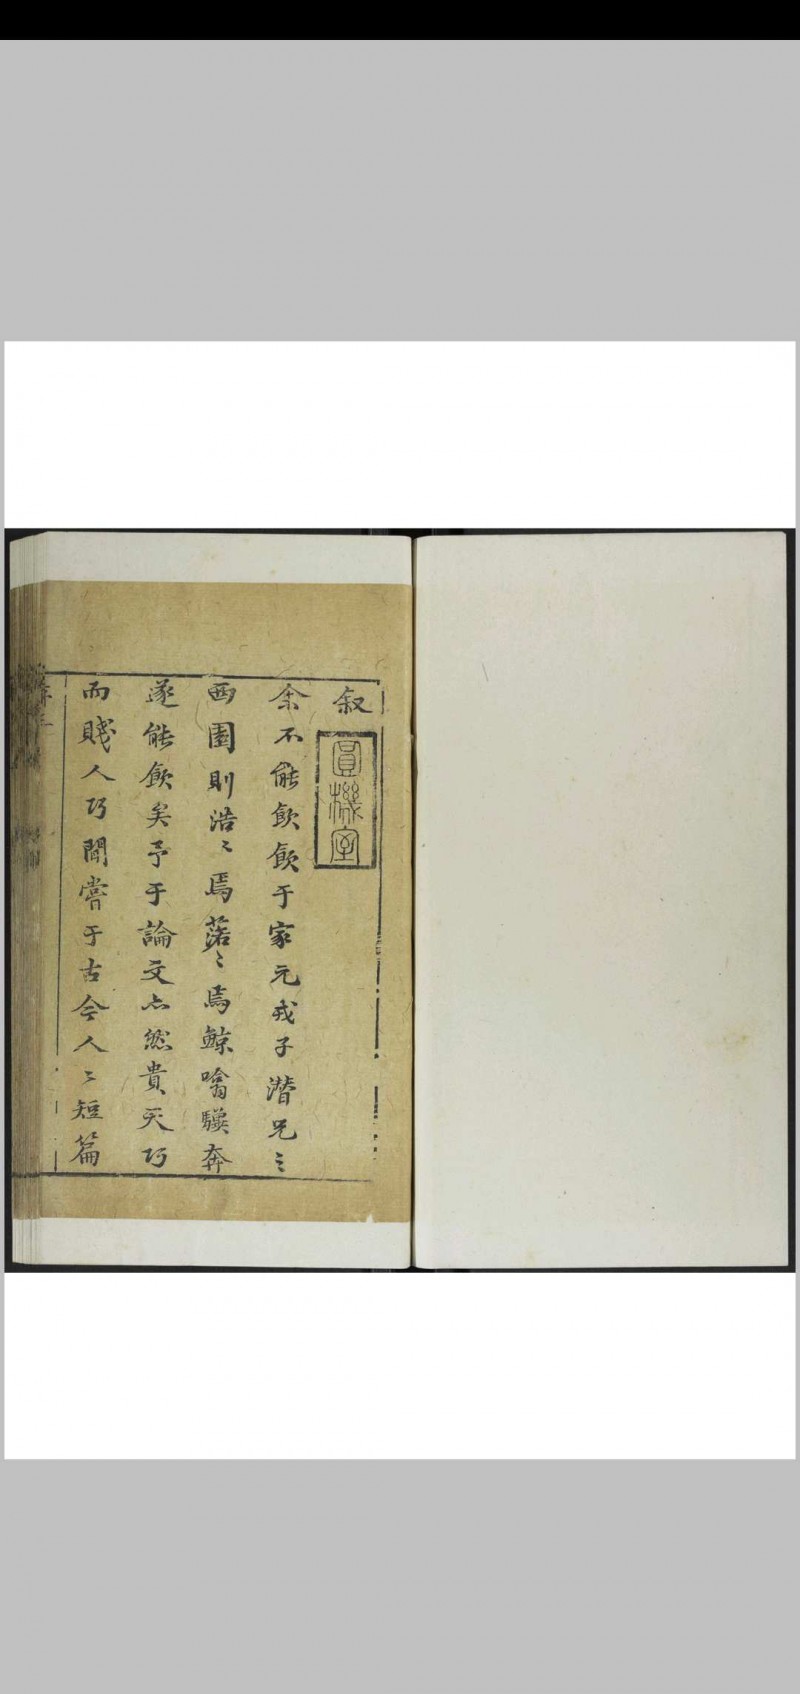 叙
圓機室
余不能飲飲于家元戎子潛兄〻
西園則浩〻焉落〻焉鯨噏驥奔
遂能飲矣予于論文亦然貴天巧
而賤人巧間嘗于古今人〻短篇